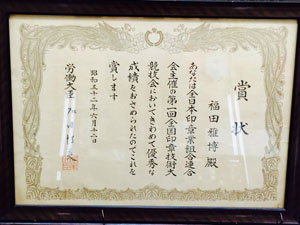 賞状
福田雅博殿
あなたは全日本印章業組合連合
会主催の第一回全国印章技術大
競技会においてきわめて優秀な
成績をおさめられたのでこれを
賞します
昭和五十二年六月十二日
労働大臣